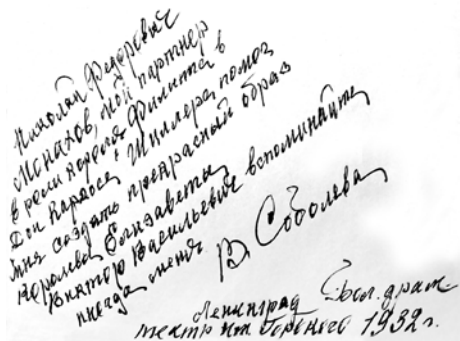 Николай Федорович
Монахов, мой партнер
в роли короля Филиппа в
Дон Карлосе Шиллера, помог
мне создать прекрасный образ
королевы Елизаветы
Виктор Васильевич вспоминайте
иногда меня
В. Соболева
Ленинград Бол. драм
театр им Горького 1932 г.